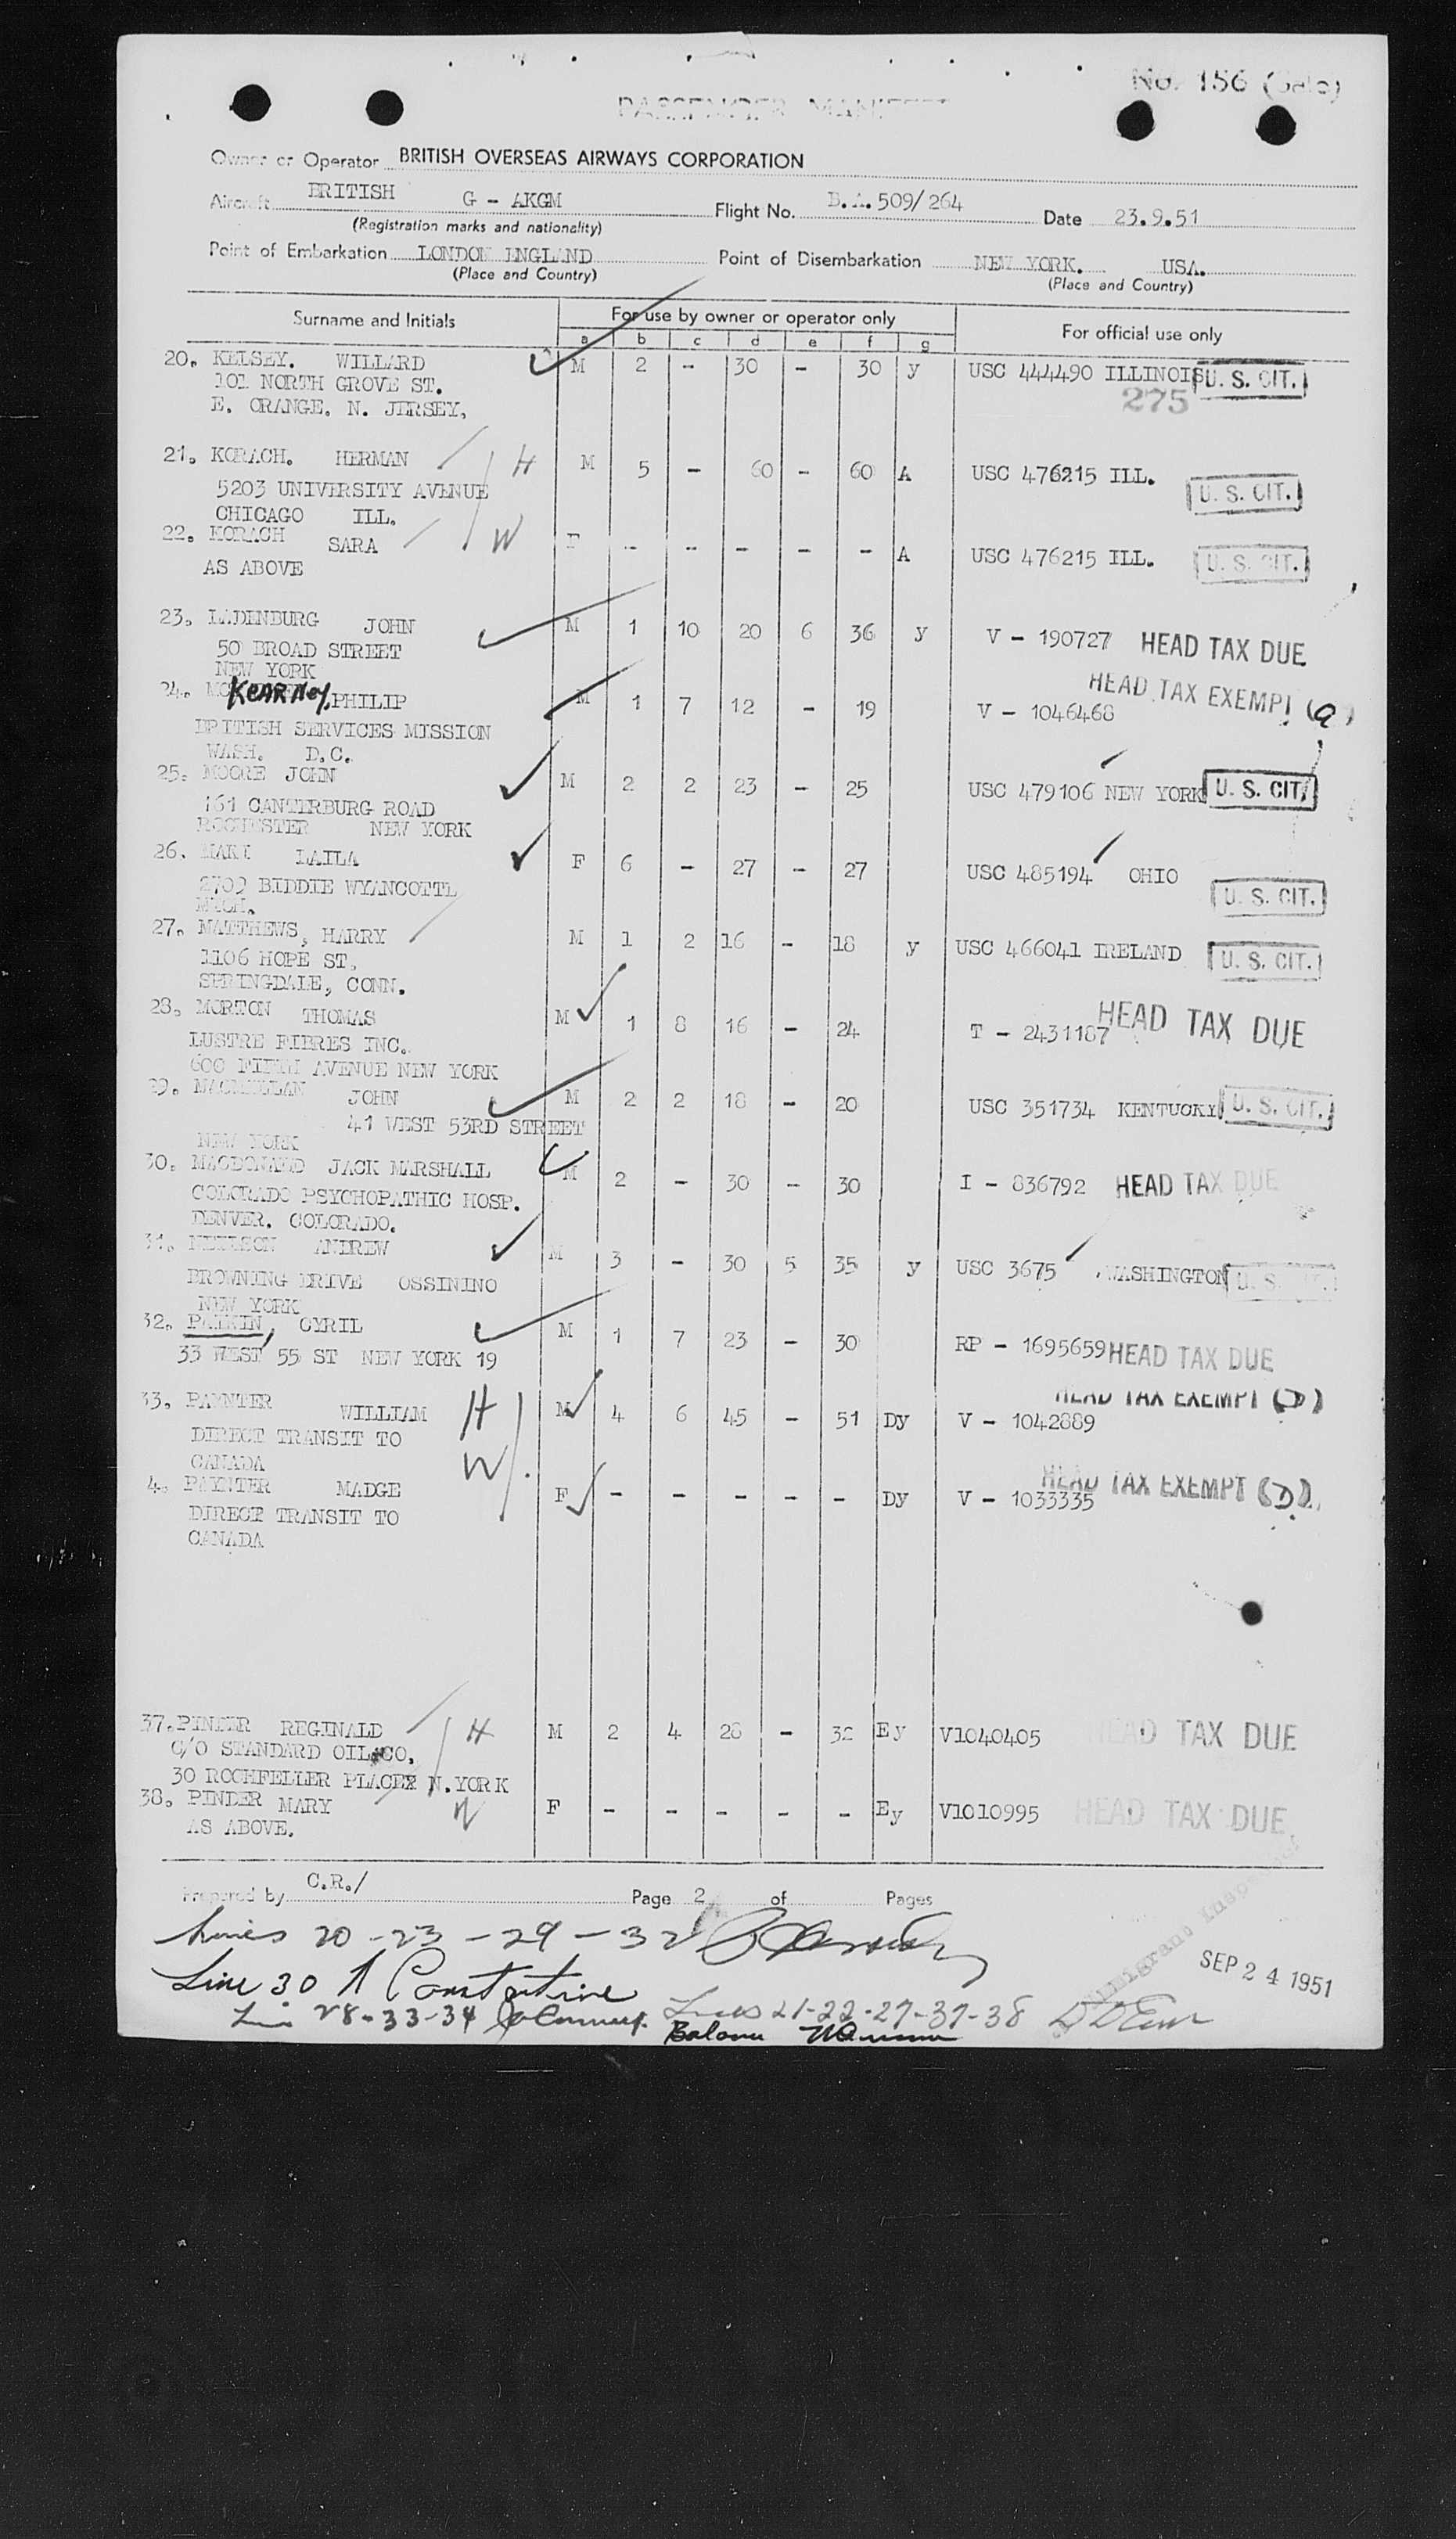 No. 156
PASSENGER MANIFEST
Owner or Operator BRITISH OVERSEAS AIRWAYS CORPORATION
Aircraft BRITISH G - AKGM Flight No. B.A.509/264 Date 23.9.51
(Registration marks and nationality)
Point of Embarkation LONDON ENGLAND Point of Disembarkation NEW YORK. USA.
(Place and Country) (Place and Country)
Surname and Initials For use by owner or operator only For official use only
a b c d e f g
20. KELSEY. WILLARD M 2 - 30 - 30 y USC 444490 ILLINOIS U. S. CIT.
101 NORTH GROVE ST. 275
E. ORANGE. N. JERSEY,
21. KORACH. HERMAN H M 5 - 60 - 60 A USC 476215 ILL. U. S. CIT.
5203 UNIVERSITY AVENUE
CHICAGO ILL.
22. KORACH SARA W F - - - - - A USC 476215 ILL. U. S. CIT.
AS ABOVE
23. LADENBURG JOHN M 1 10 20 6 36 y V - 190727 HEAD TAX DUE
50 BROAD STREET
NEW YORK
24. KEARNEY, PHILIP M 1 7 12 - 19 V - 1046468 HEAD TAX EXEMPT (a)
BRITISH SERVICES MISSION
WASH. D.C.
25. MOORE JOHN M 2 2 23 - 25 USC 479106 NEW YORK U. S. CIT.
161 CANTERBURG ROAD
ROCHESTER NEW YORK
26. MAKI LAILA F 6 - 27 - 27 USC 485194 OHIO U. S. CIT.
2709 BIDDIE WYANCOTTE
MICH.
27. MATTHEWS, HARRY M 1 2 16 - 18 y USC 466041 IRELAND U. S. CIT.
1106 HOPE ST,
SPRINGDALE, CONN.
28. MORTON THOMAS M 1 8 16 - 24 T - 2431187 HEAD TAX DUE
LUSTRE FIBRES INC.
600 FIFTH AVENUE NEW YORK
29. MACMILLAN JOHN M 2 2 18 - 20 USC 351734 KENTUCKY U. S. CIT.
41 WEST 53RD STREET
NEW YORK
30. MACDONALD JACK MARSHALL M 2 - 30 - 30 I - 836792 HEAD TAX DUE
COLORADO PSYCHOPATHIC HOSP.
DENVER. COLORADO.
31. NEILSON ANDREW M 3 - 30 5 35 y USC 3675 WASHINGTON U. S. CIT.
BROWNING DRIVE OSSINING
NEW YORK
32. PATKIN, CYRIL M 1 7 23 - 30 RP - 1695659 HEAD TAX DUE
33 WEST 55 ST NEW YORK 19
33. PAYNTER WILLIAM H M 4 6 45 - 51 Dy V - 1042889 HEAD TAX EXEMPT (D)
DIRECT TRANSIT TO
CANADA W
4. PAYNTER MADGE F - - - - - Dy V - 1033335 HEAD TAX EXEMPT (D)
DIRECT TRANSIT TO
CANADA
37. PINDER REGINALD H M 2 4 28 - 32 Ey V1040405 HEAD TAX DUE
C/O STANDARD OIL CO,
30 ROCHFELLER PLACE N.YORK
38. PINDER MARY W F - - - - - Ey V1010995 HEAD TAX DUE
AS ABOVE.
Prepared by C.R./ Page 2 of Pages
Lines 20 - 23 - 29 - 32
Immigrant Inspector
SEP 24 1951
Line 30
28-33-34
Lines 21-22-27-37-38
Balance